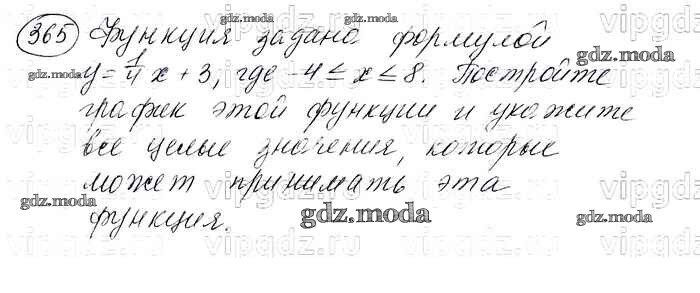 365 Функция задана формулой
y = 1/4 x + 3, где -4 ≤ x ≤ 8. Постройте
график этой функции и укажите
все целые значения, которые
может принимать эта
функция.
gdz.moda
gdz.moda
gdz.moda
gdz.moda
gdz.moda
gdz.moda
gdz.moda
vipgdz
vipgdz
vipgdz